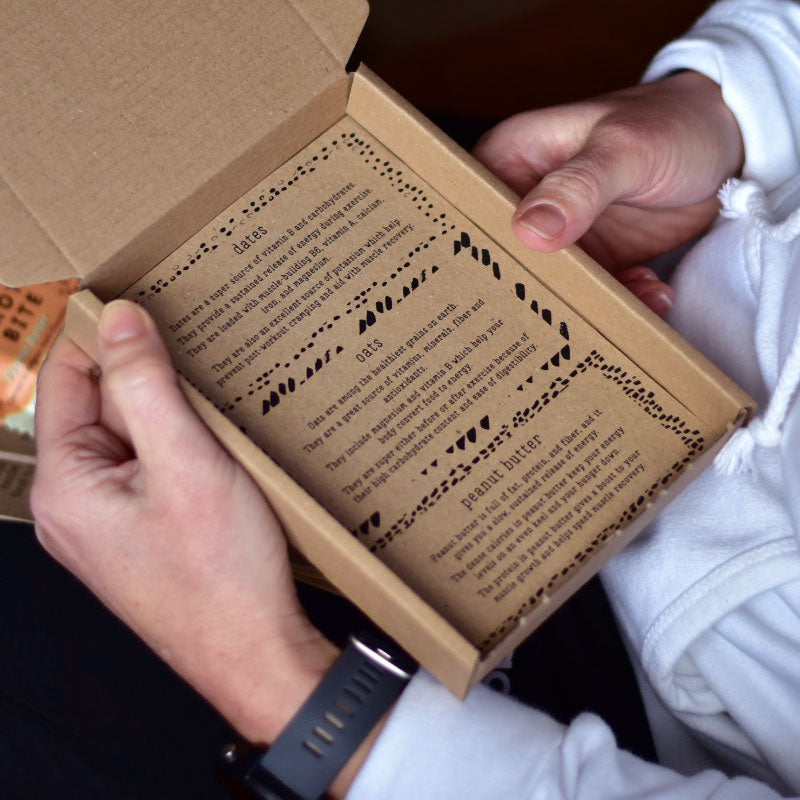 BITE
dates
Dates are a super source of vitamin B and carbohydrates.
They provide a sustained release of energy during exercise.
They are loaded with muscle-building B6, vitamin A, calcium,
iron, and magnesium.
They are also an excellent source of potassium which help
prevent post-workout cramping and aid with muscle recovery.
oats
Oats are among the healthiest grains on earth.
They are a great source of vitamins, minerals, fiber and
antioxidants.
They include magnesium and vitamin B which help your
body convert food to energy.
They are super either before or after exercise because of
their high carbohydrate content and ease of digestibility.
peanut butter
Peanut butter is full of fat, protein, and fiber, and it
gives you a slow, sustained release of energy
The dense calories in peanut butter keep your energy
levels on an even keel and your hunger down.
The protein in peanut butter gives a boost to your
muscle growth and helps speed muscle recovery.